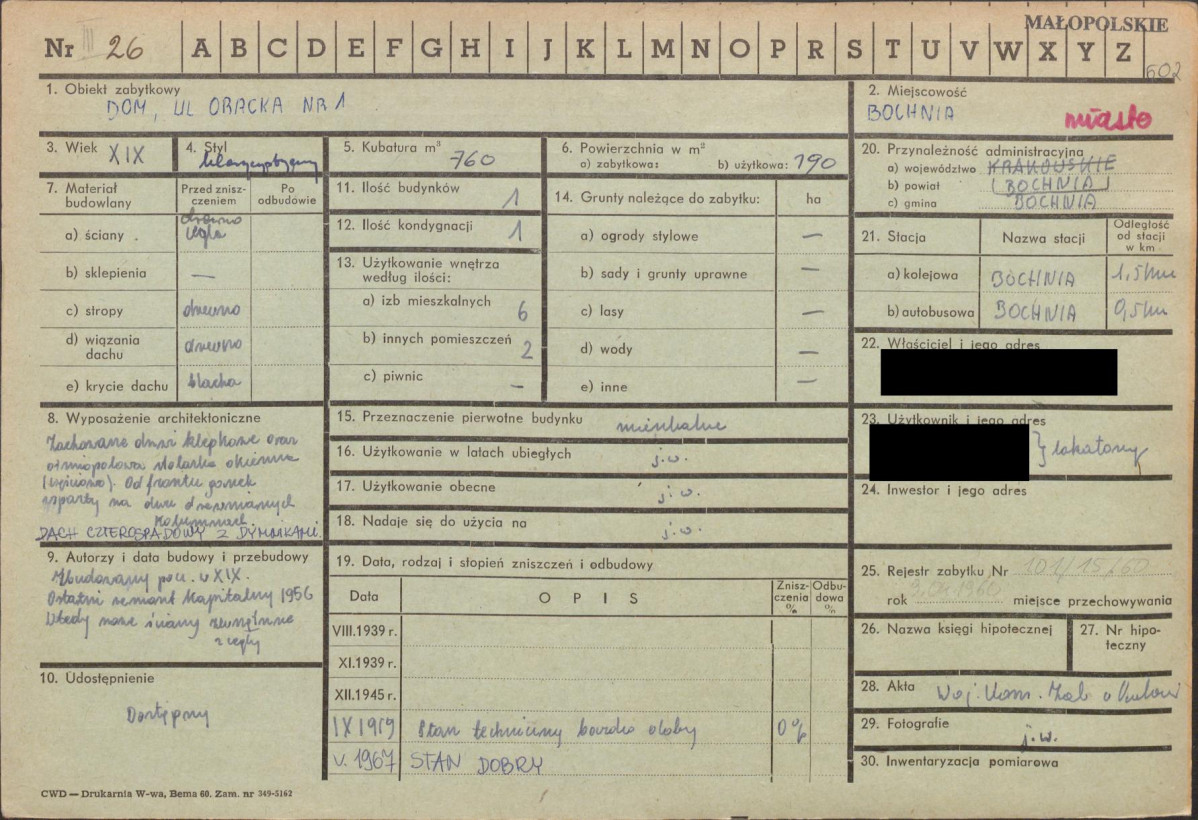 MAŁOPOLSKIE
Nr III 26 A B C D E F G H I J K L M N O P R S T U V W X Y Z
602
1. Obiekt zabytkowy
DOM, UL ORACKA NR 1
2. Miejscowość
BOCHNIA miasto
3. Wiek XIX
4. Styl
5. Kubatura m³ 760
6. Powierzchnia w m²
a) zabytkowa: b) użytkowa: 190
7. Materiał budowlany
Przed zniszczeniem
Po odbudowie
a) ściany drewno cegła
b) sklepienia —
c) stropy drewno
d) wiązania dachu drewno
e) krycie dachu blacha
8. Wyposażenie architektoniczne
Zachowane drzwi klepkowe oraz
ośmiopolowa stolarka okienna
(częściowo). Od frontu ganek
wsparty na dwu drewnianych
kolumnach.
DACH CZTEROSPADOWY Z DYMNIKAMI.
9. Autorzy i data budowy i przebudowy
Zbudowany pocz. w XIX.
Ostatni remont kapitalny 1956
Wtedy nowe ściany zewnętrzne
z cegły
10. Udostępnienie
Dostępny
11. Ilość budynków 1
12. Ilość kondygnacji 1
13. Użytkowanie wnętrza
według ilości:
a) izb mieszkalnych 6
b) innych pomieszczeń 2
c) piwnic —
14. Grunty należące do zabytku: ha
a) ogrody stylowe —
b) sady i grunty uprawne —
c) lasy —
d) wody —
e) inne —
15. Przeznaczenie pierwotne budynku mieszkalne
16. Użytkowanie w latach ubiegłych j.w.
17. Użytkowanie obecne j.w.
18. Nadaje się do użycia na j.w.
19. Data, rodzaj i stopień zniszczeń i odbudowy
Data
O P I S
Zniszczenia %
Odbudowa %
VIII.1939 r.
XI.1939 r.
XII.1945 r.
IX 1959 Stan techniczny bardzo dobry 0%
V. 1967 STAN DOBRY
20. Przynależność administracyjna
a) województwo KRAKOWSKIE
b) powiat (BOCHNIA)
c) gmina BOCHNIA
21. Stacja
Nazwa stacji
Odległość od stacji w km
a) kolejowa BOCHNIA 1,5 km
b) autobusowa BOCHNIA 0,5 km
22. Właściciel i jego adres
23. Użytkownik i jego adres
} lokatorzy
24. Inwestor i jego adres
25. Rejestr zabytku Nr
rok miejsce przechowywania
26. Nazwa księgi hipotecznej
27. Nr hipoteczny
28. Akta Woj. Kons. Zab w Krakowie
29. Fotografie
j.w.
30. Inwentaryzacja pomiarowa
CWD — Drukarnia W-wa, Bema 60. Zam. nr 349-5162